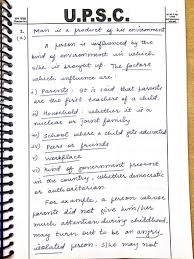 U.P.S.C.
1.
(a)
Man is a product of his environment
A person is influenced by the
kind of environment in which
s/he is brought up. The factors
which influence are:
i) Parents: It is said that parents
are the first teachers of a child.
ii) Household whether it is a
nuclear or joint family
iii) School where a child gets educated
iv) Peers or friends
v) Workplace
vi) Kind of government present
in the country, whether democratic
or authoritarian.
For example, a person whose
parents did not give him/her
much attention during childhood,
may turn out to be an angry,
isolated person. S/he may not